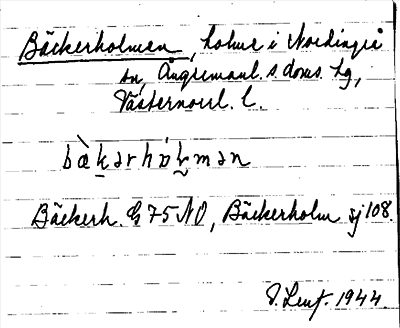 Bäckerholmen, holme i Nordingrå
sn, Ångermanl. s. doms. hg,
Västernorrl. l.
bὰk̲ərhɷ̀l̬mən
Bäckerh. G 75 NO, Bäckerholm sj 108.
1944.